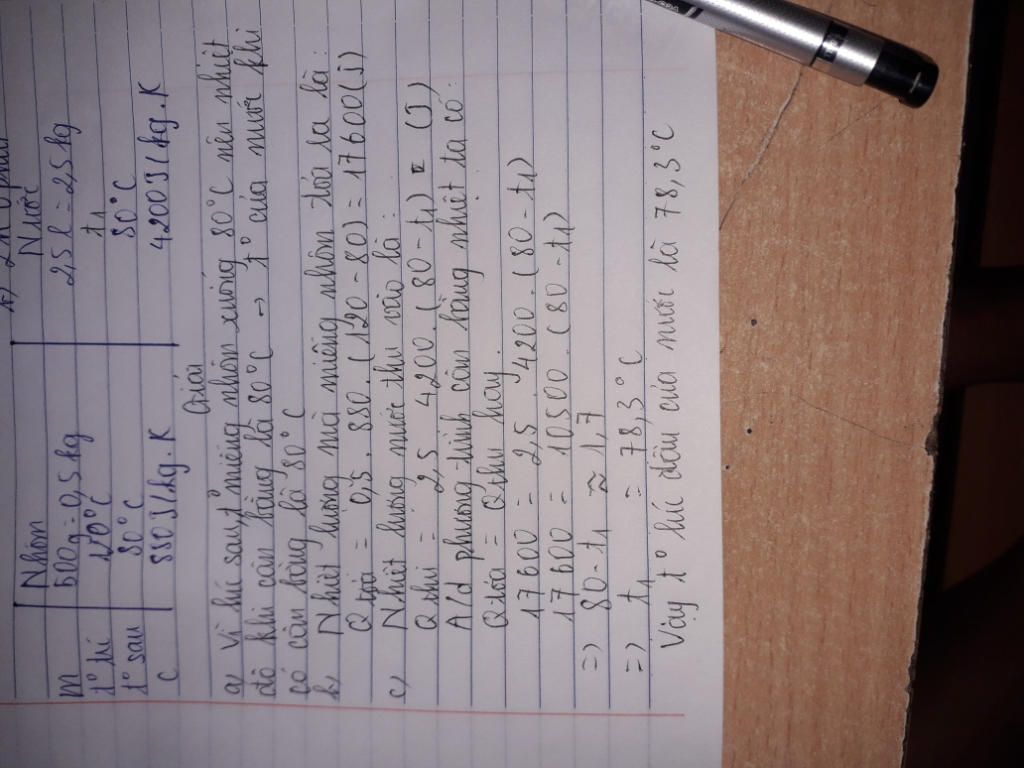 Nhôm Nước
m 500g = 0,5kg 2,5l = 2,5kg
t° bđ 120°C t1
t° sau 80°C 80°C
c 880J/kg.K 4200J/kg.K
Giải
a, Vì khi sau miếng nhôm xuống 80°C nên nhiệt
độ khi cân bằng là 80°C → t° của nước khi
có cân bằng là 80°C
b, Nhiệt lượng mà miếng nhôm tỏa ra là:
Q tỏa = 0,5 . 880 . (120 - 80) = 17600 (J)
c, Nhiệt lượng nước thu vào là:
Q thu = 2,5 . 4200 . (80 - t1) = (J)
A/d phương trình cân bằng nhiệt ta có:
Q tỏa = Q thu hay
17600 = 2,5 . 4200 . (80 - t1)
17600 = 10500 . (80 - t1)
=> 80 - t1 ≈ 1,7
=> t1 = 78,3°C
Vậy t° lúc đầu của nước là 78,3°C